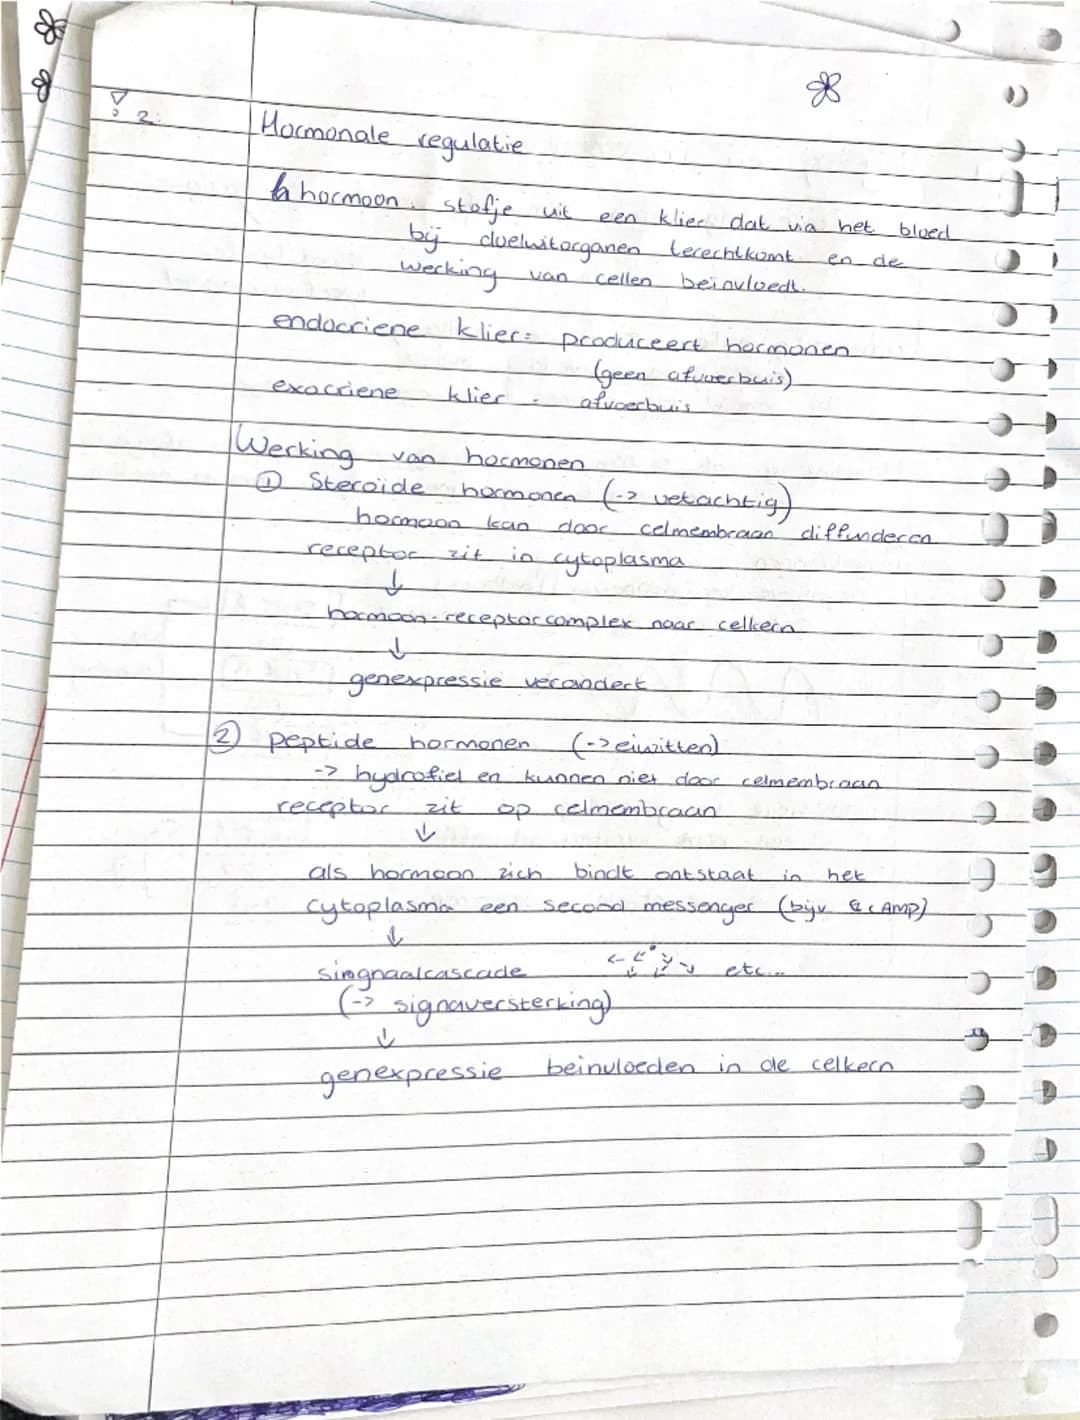 ! 2.
Hormonale regulatie
hormoon: stofje uit een klier dat via het bloed
bij doelwitorganen terechtkomt en de
werking van cellen beïnvloedt.
endocriene klier: produceert hormonen
(geen afvoerbuis)
exocriene klier: afvoerbuis
Werking van hormonen
① Steroïde hormonen (-> vetachtig)
hormoon kan door celmembraan diffunderen
receptor zit in cytoplasma
↓
hormoon-receptorcomplex naar celkern
↓
genexpressie verandert
② peptide hormonen (-> eiwitten)
-> hydrofiel en kunnen niet door celmembraan
receptor zit op celmembraan
↓
als hormoon zich bindt ontstaat in het
cytoplasma een second messenger (bijv cAMP)
↓
singnaalcascade etc...
(-> signaversterking)
↓
genexpressie beinvloeden in de celkern